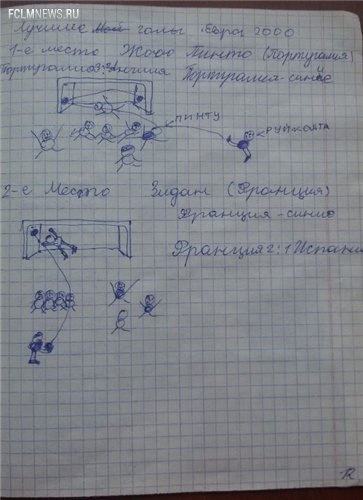 FCLMNEWS.RU
Лучшие Мой голы Евро 2000
1-е место Жоао Пинто (Португалия)
Португалия 3:2 Англия Португалия-синие
ПИНТУ
РУЙ КОШТА
2-е Место Зидан (Франция)
Франция-синие
Франция 2:1 Испания